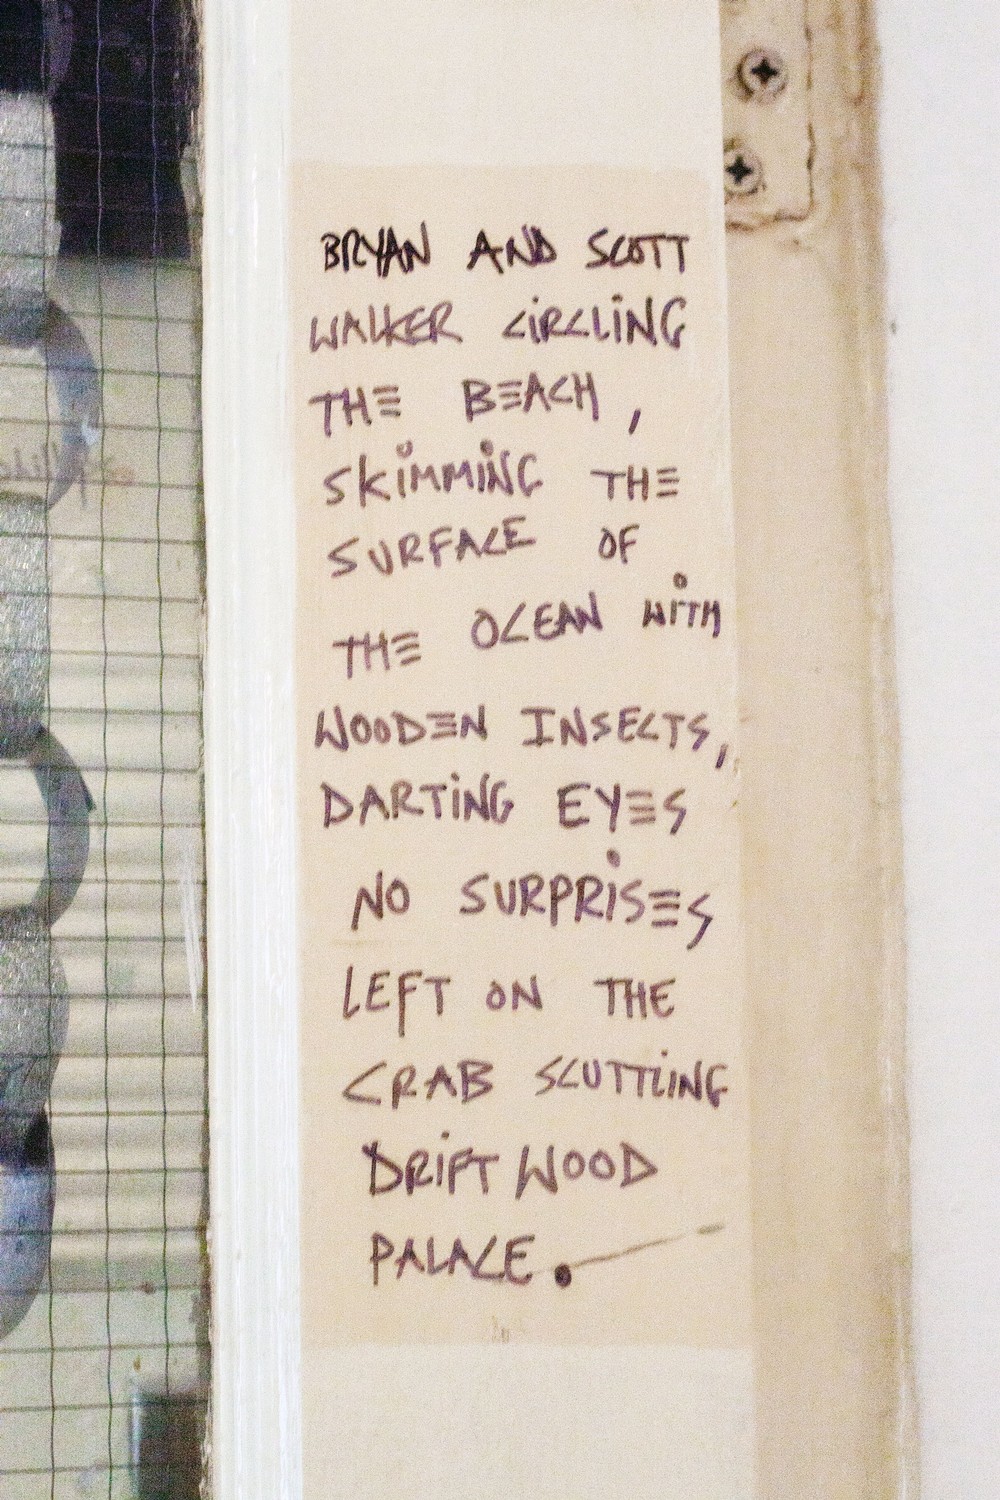 BRYAN AND SCOTT
WALKER CiRCLiNG
THE BEACH,
SKiMMiNG THE
SURFACE OF
THE OCEAN WiTH
WOODEN INSECTS,
DARTiNG EYES
NO SURPRiSES
LEFT ON THE
CRAB SCUTTLiNG
DRiFTWOOD
PALACE.